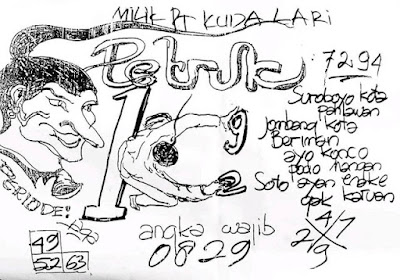 MILIK PT KUDA LARI
Petruk
7294
Suroboyo kota
pahlawan
Jombang kota
Beriman
ayo konco
podo mangan
Soto ayam enake
gak karuan
1
9
2
PERIODE:
49
52 63
angka wajib
0829
4/7
2/9